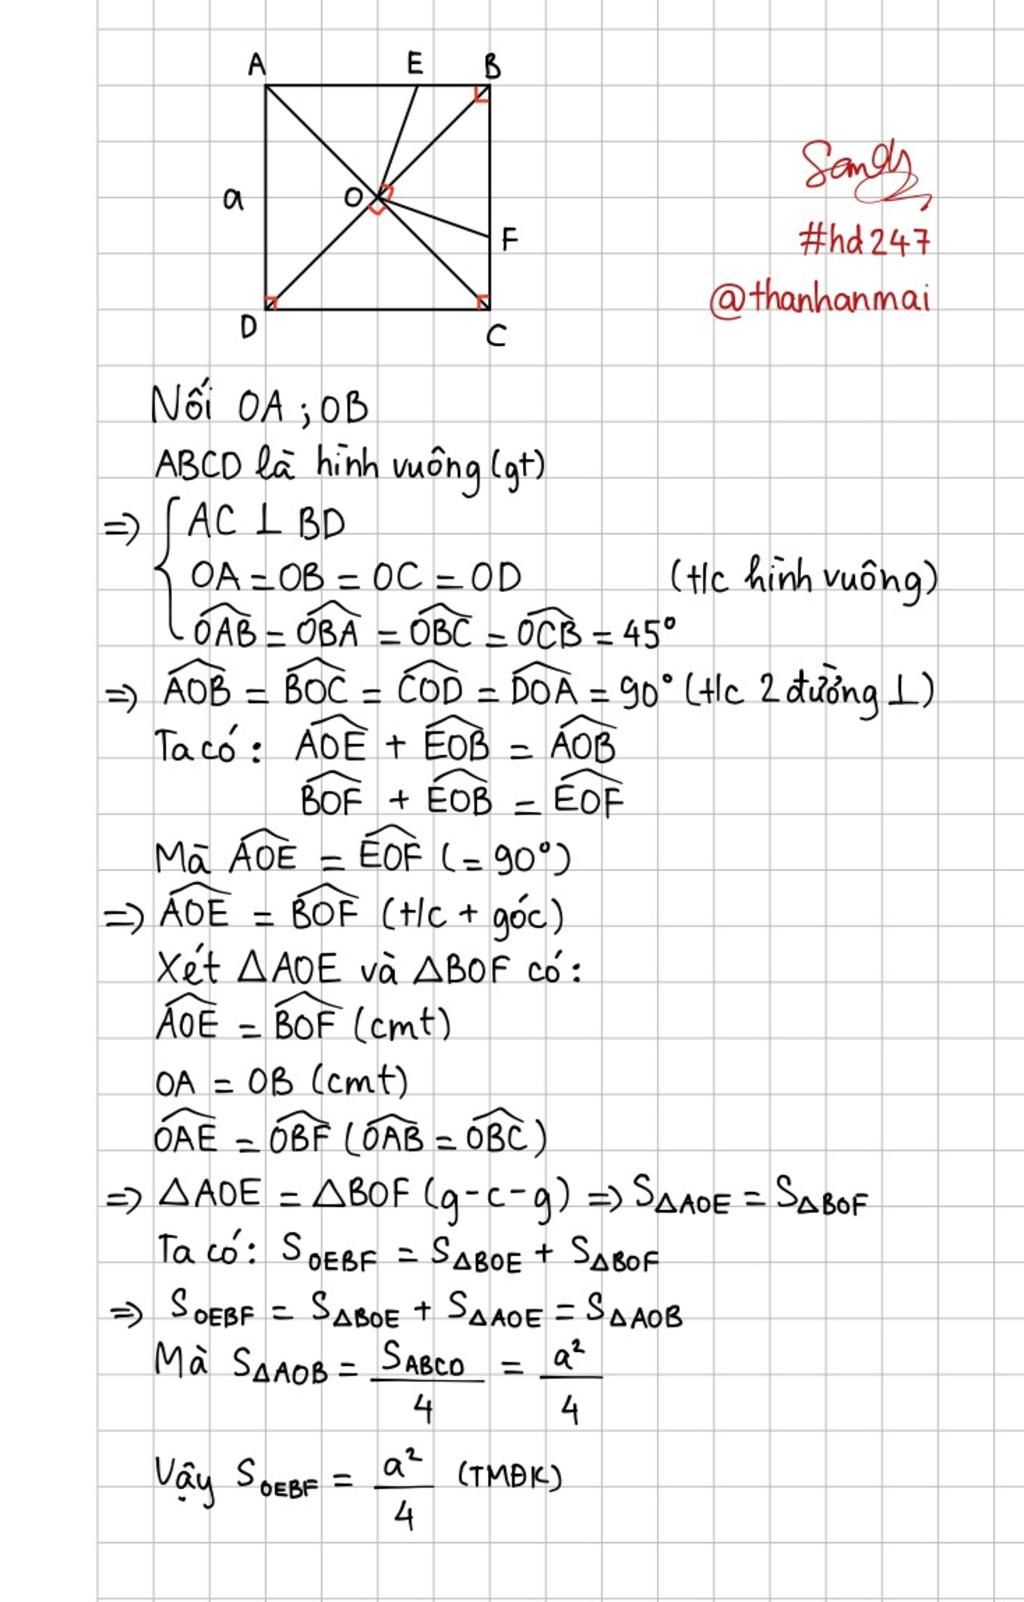 A E B
a O F
D C
Sandy
#hd247
@thanhanmai
Nối OA ; OB
ABCD là hình vuông (gt)
=> { AC ⊥ BD
OA = OB = OC = OD (t/c hình vuông)
\widehat{OAB} = \widehat{OBA} = \widehat{OBC} = \widehat{OCB} = 45°
=> \widehat{AOB} = \widehat{BOC} = \widehat{COD} = \widehat{DOA} = 90° (t/c 2 đường ⊥)
Ta có : \widehat{AOE} + \widehat{EOB} = \widehat{AOB}
\widehat{BOF} + \widehat{EOB} = \widehat{EOF}
Mà \widehat{AOE} = \widehat{EOF} (= 90°)
=> \widehat{AOE} = \widehat{BOF} (t/c + góc)
Xét △AOE và △BOF có :
\widehat{AOE} = \widehat{BOF} (cmt)
OA = OB (cmt)
\widehat{OAE} = \widehat{OBF} (\widehat{OAB} = \widehat{OBC})
=> △AOE = △BOF (g-c-g) => S△AOE = S△BOF
Ta có : SOEBF = S△BOE + S△BOF
=> SOEBF = S△BOE + S△AOE = S△AOB
Mà S△AOB = SABCD/4 = a²/4
Vậy SOEBF = a²/4 (TMĐK)